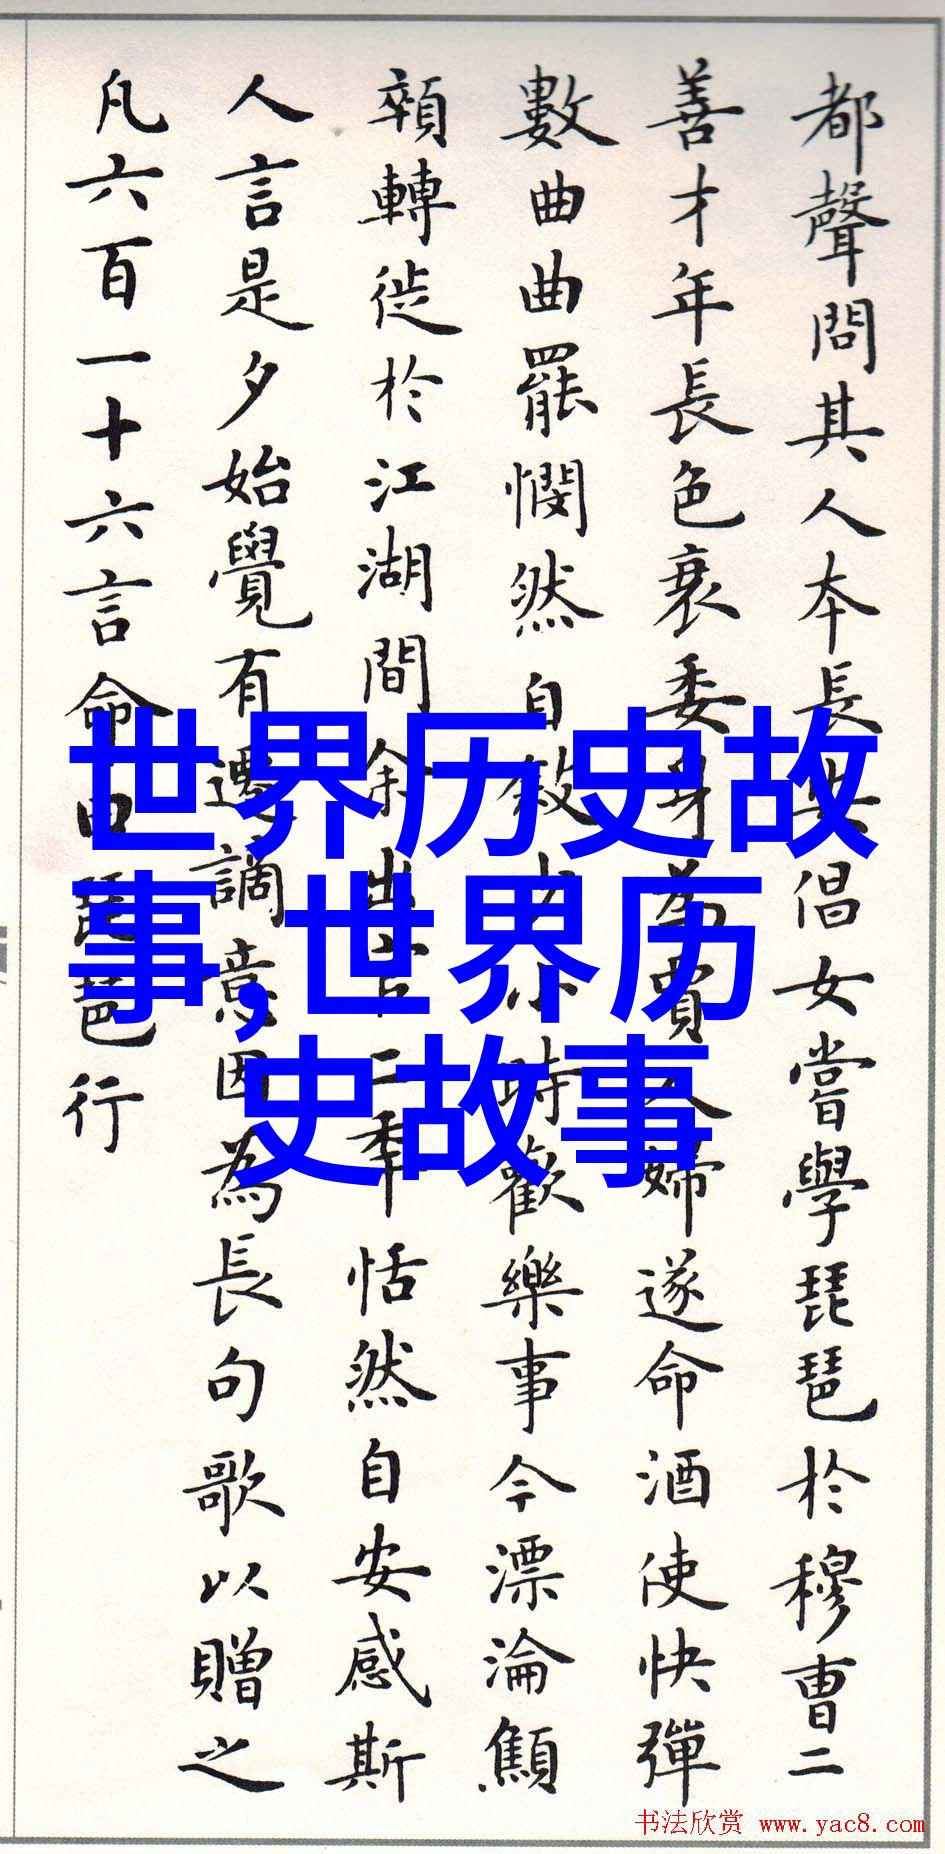 都聲問其人本長安倡女嘗學琵琶於穆曹二
善才年長色衰委身為賈人婦遂命酒使快彈
數曲曲罷憫然自敘少小時歡樂事今漂淪顦
顇轉徙於江湖間余出官二秊恬然自安感斯
人言是夕始覺有遷謫意因為長句歌以贈之
凡六百一十六言命曰琵琶行
世界历史故
事,世界历
史故事
书法欣赏 www.yac8.com